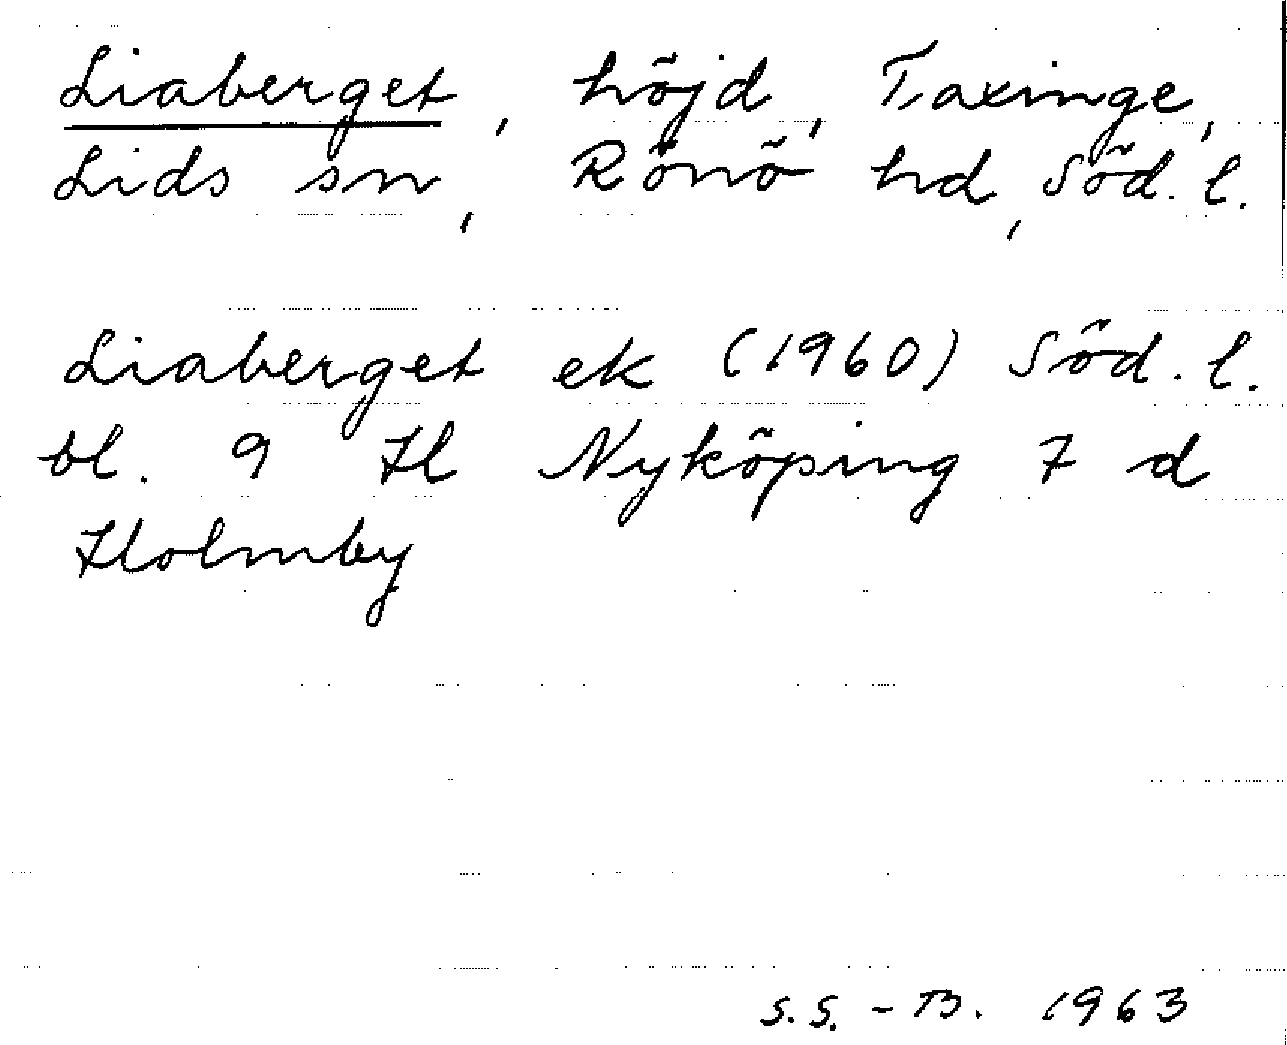 Liaberget, höjd, Taxinge,
Lids sn, Rönö hd, Söd. l.
Liaberget ek (1960) Söd. l.
bl. 9 H Nyköping 7 d
Holmby
S.S. - B. 1963